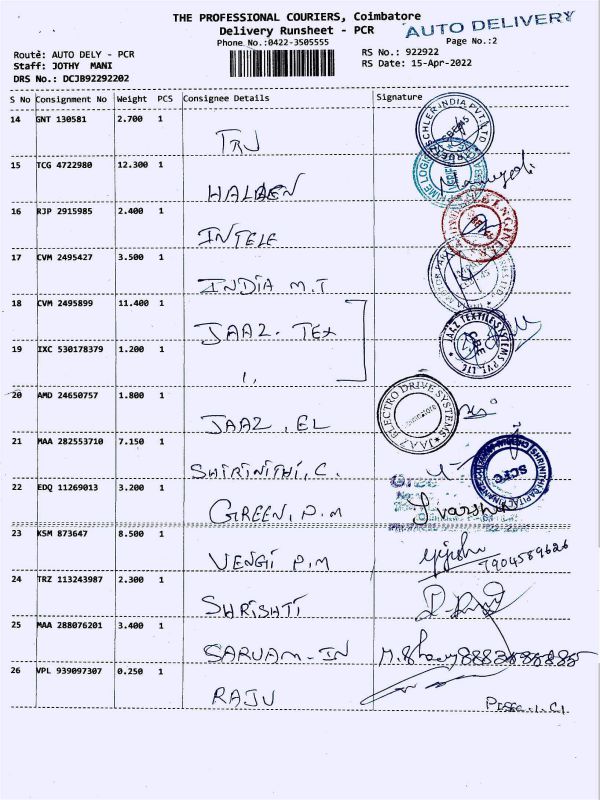 THE PROFESSIONAL COURIERS, Coimbatore
AUTO DELIVERY
Delivery Runsheet - PCR
Phone No.:0422-3505555
Page No.:2
Route: AUTO DELY - PCR
RS No.: 922922
Staff: JOTHY MANI
RS Date: 15-Apr-2022
DRS No.: DCJB92292202
S No Consignment No Weight PCS Consignee Details Signature
14 GNT 130581 2.700 1
TRJ
15 TCG 4722980 12.300 1
HALDEN
16 RJP 2915985 2.400 1
INTELE
17 CVM 2495427 3.500 1
INDIA M.T
18 CVM 2495899 11.400 1
JAAZ. TEX
JAAZ TEXTILE SYSTEMS PVT. LTD.
CBE
19 IXC 530178379 1.200 1
20 AMD 24650757 1.800 1
JAAZ. EL
JAAZ ELECTRO DRIVE SYSTEMS
21 MAA 282553710 7.150 1
SHIRINITHI, C.
SCFC
22 EDQ 11269013 3.200 1
GREEN. P.M
23 KSM 873647 8.500 1
VENGI P.M
7904589626
24 TRZ 113243987 2.300 1
SHRISHTI
25 MAA 288076201 3.400 1
SARVAM-IN
26 VPL 939097307 0.250 1
RAJU